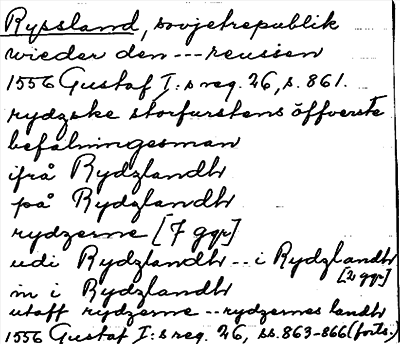 Ryssland, sovjetrepublik
wieder den --- reussen
1556 Gustaf I:s reg. 26, s. 861.
rydzske storfurstens öffverste
befalningesman
ifrå Rydzlandh
på Rydzlandh
rydzerne [7 ggr]
udi Rydzlandh -- i Rydzlandh
[2 ggr]
in i Rydzlandh
utaff rydzerne -- rydzernes landh
1556 Gustaf I:s reg. 26, ss. 863-866 (forts.)